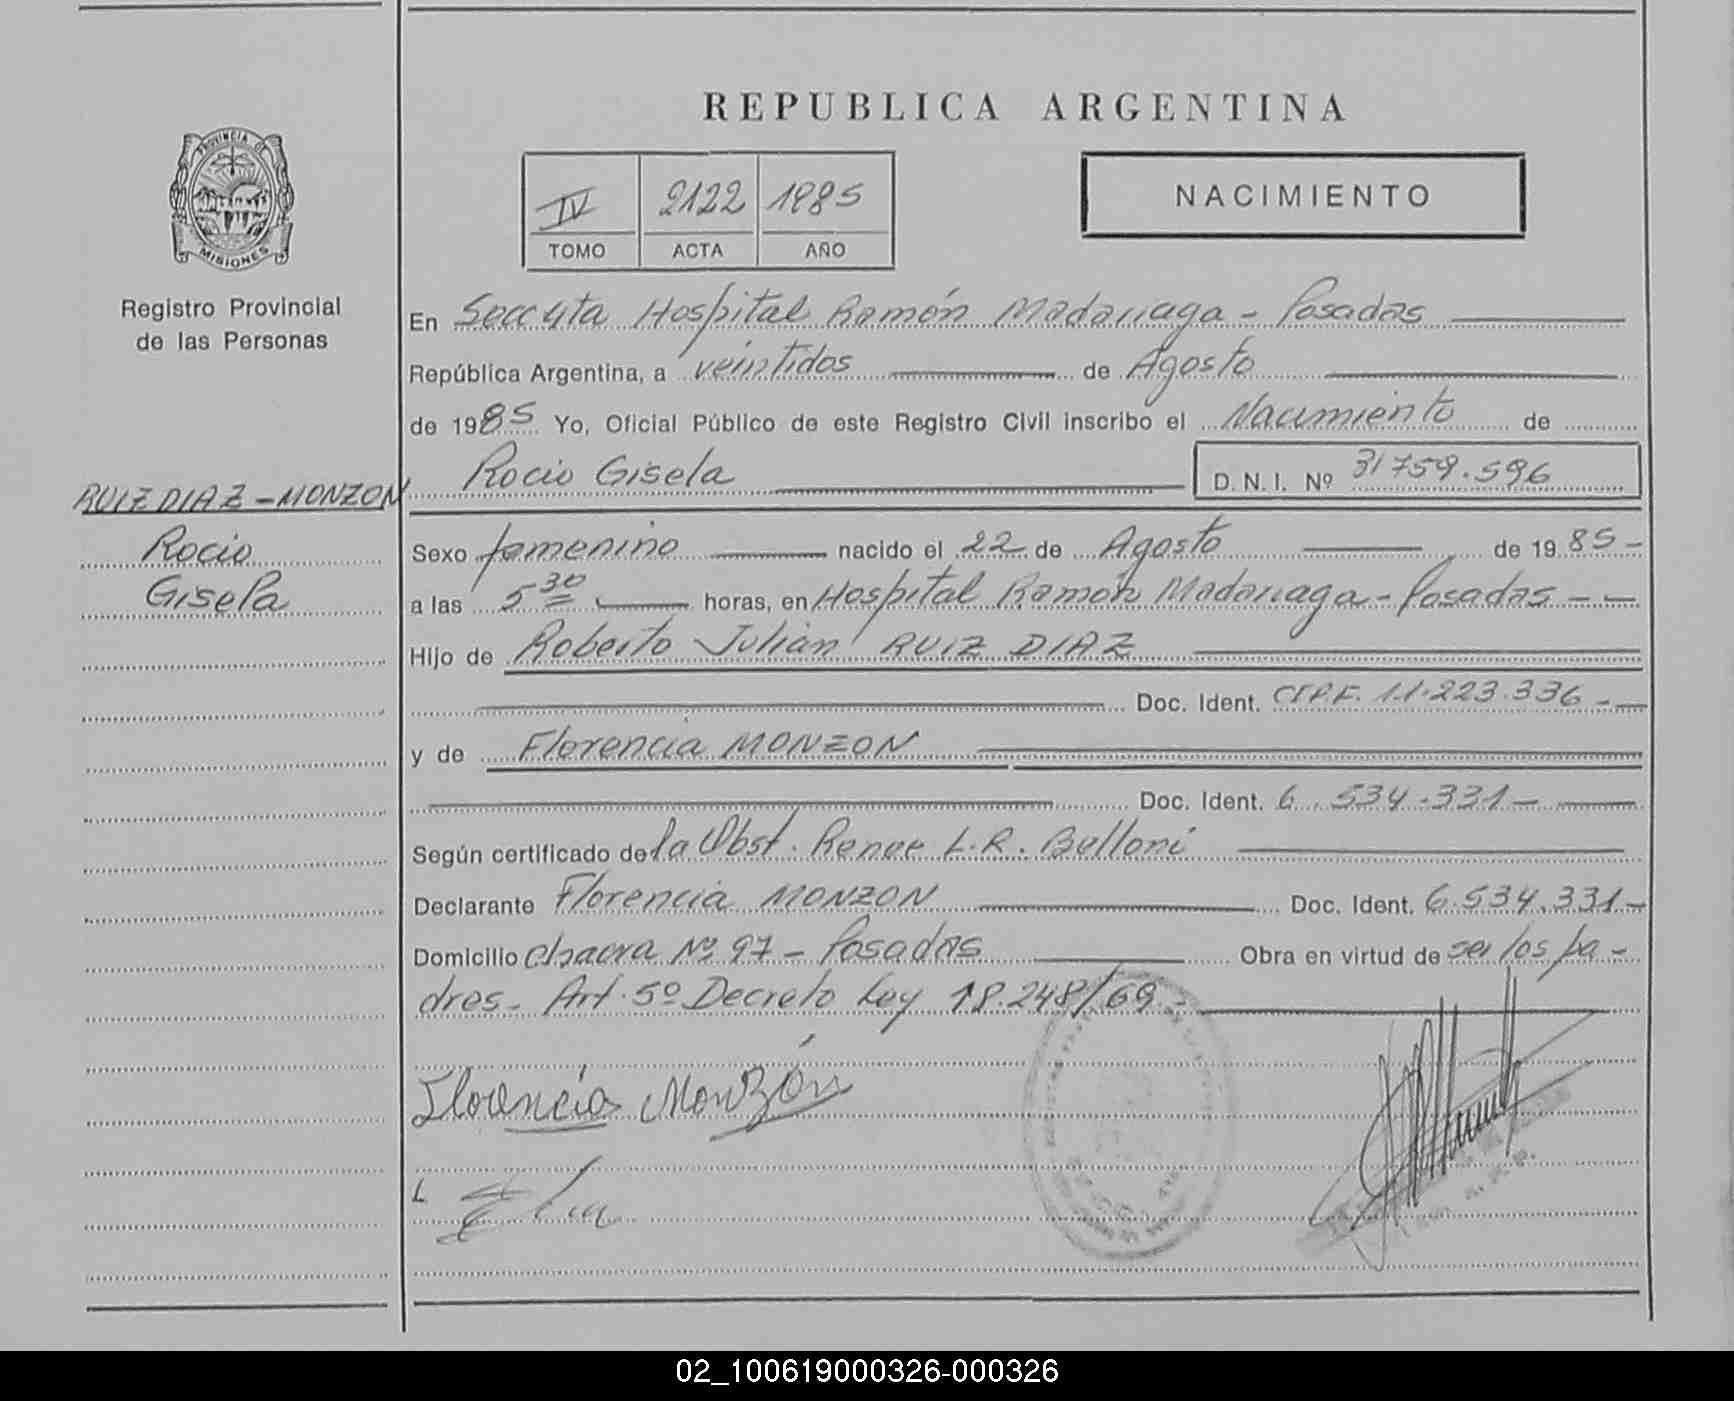 REPUBLICA ARGENTINA
PROVINCIA DE
MISIONES
Registro Provincial
de las Personas
IV 2122 1985
TOMO ACTA AÑO
NACIMIENTO
En Secc 4ta Hospital Ramón Madariaga - Posadas
República Argentina, a veintidos de Agosto
de 1985 Yo, Oficial Público de este Registro Civil inscribo el Nacimiento de
Rocio Gisela D. N. I. Nº 31759.596
RUIZ DIAZ - MONZON
Rocio
Gisela
Sexo femenino nacido el 22 de Agosto de 19 85 -
a las 5 30 horas, en Hospital Ramón Madariaga - Posadas - -
Hijo de Roberto Julián RUIZ DIAZ
Doc. Ident. CI.P.F. 11.223.336 -
y de Florencia MONZON
Doc. Ident. 6 534.331 -
Según certificado de la Obst. Renee L.R. Belloni
Declarante Florencia MONZON Doc. Ident. 6.534.331 -
Domicilio Chacra Nº 97 - Posadas Obra en virtud de ser los pa -
dres - Art. 5º Decreto Ley 18.248/69 -
Florencia Monzón
02_100619000326-000326